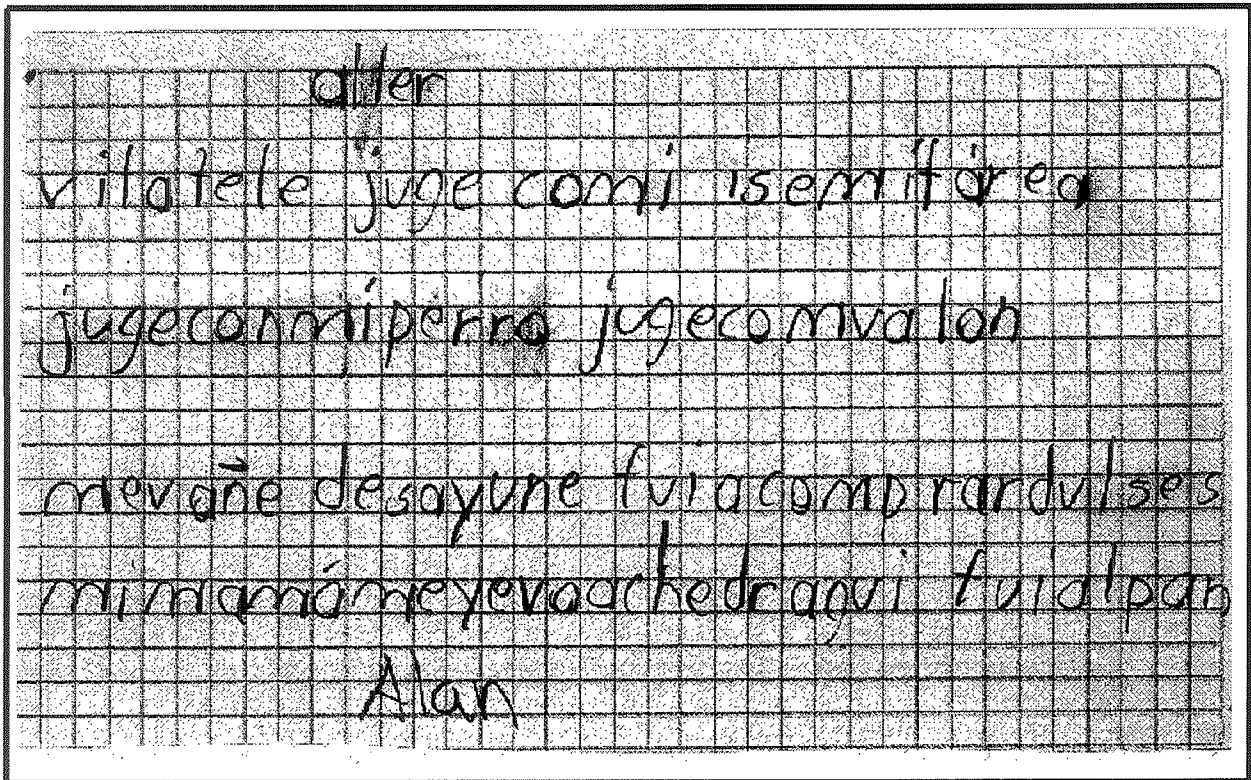 aller
vilatele juge comi isemi tarea
jugeconmiperro jugecomvalon
mevañe desayune fuiacomprardulses
mimamámeyevoachedragui fuialpan
Alan